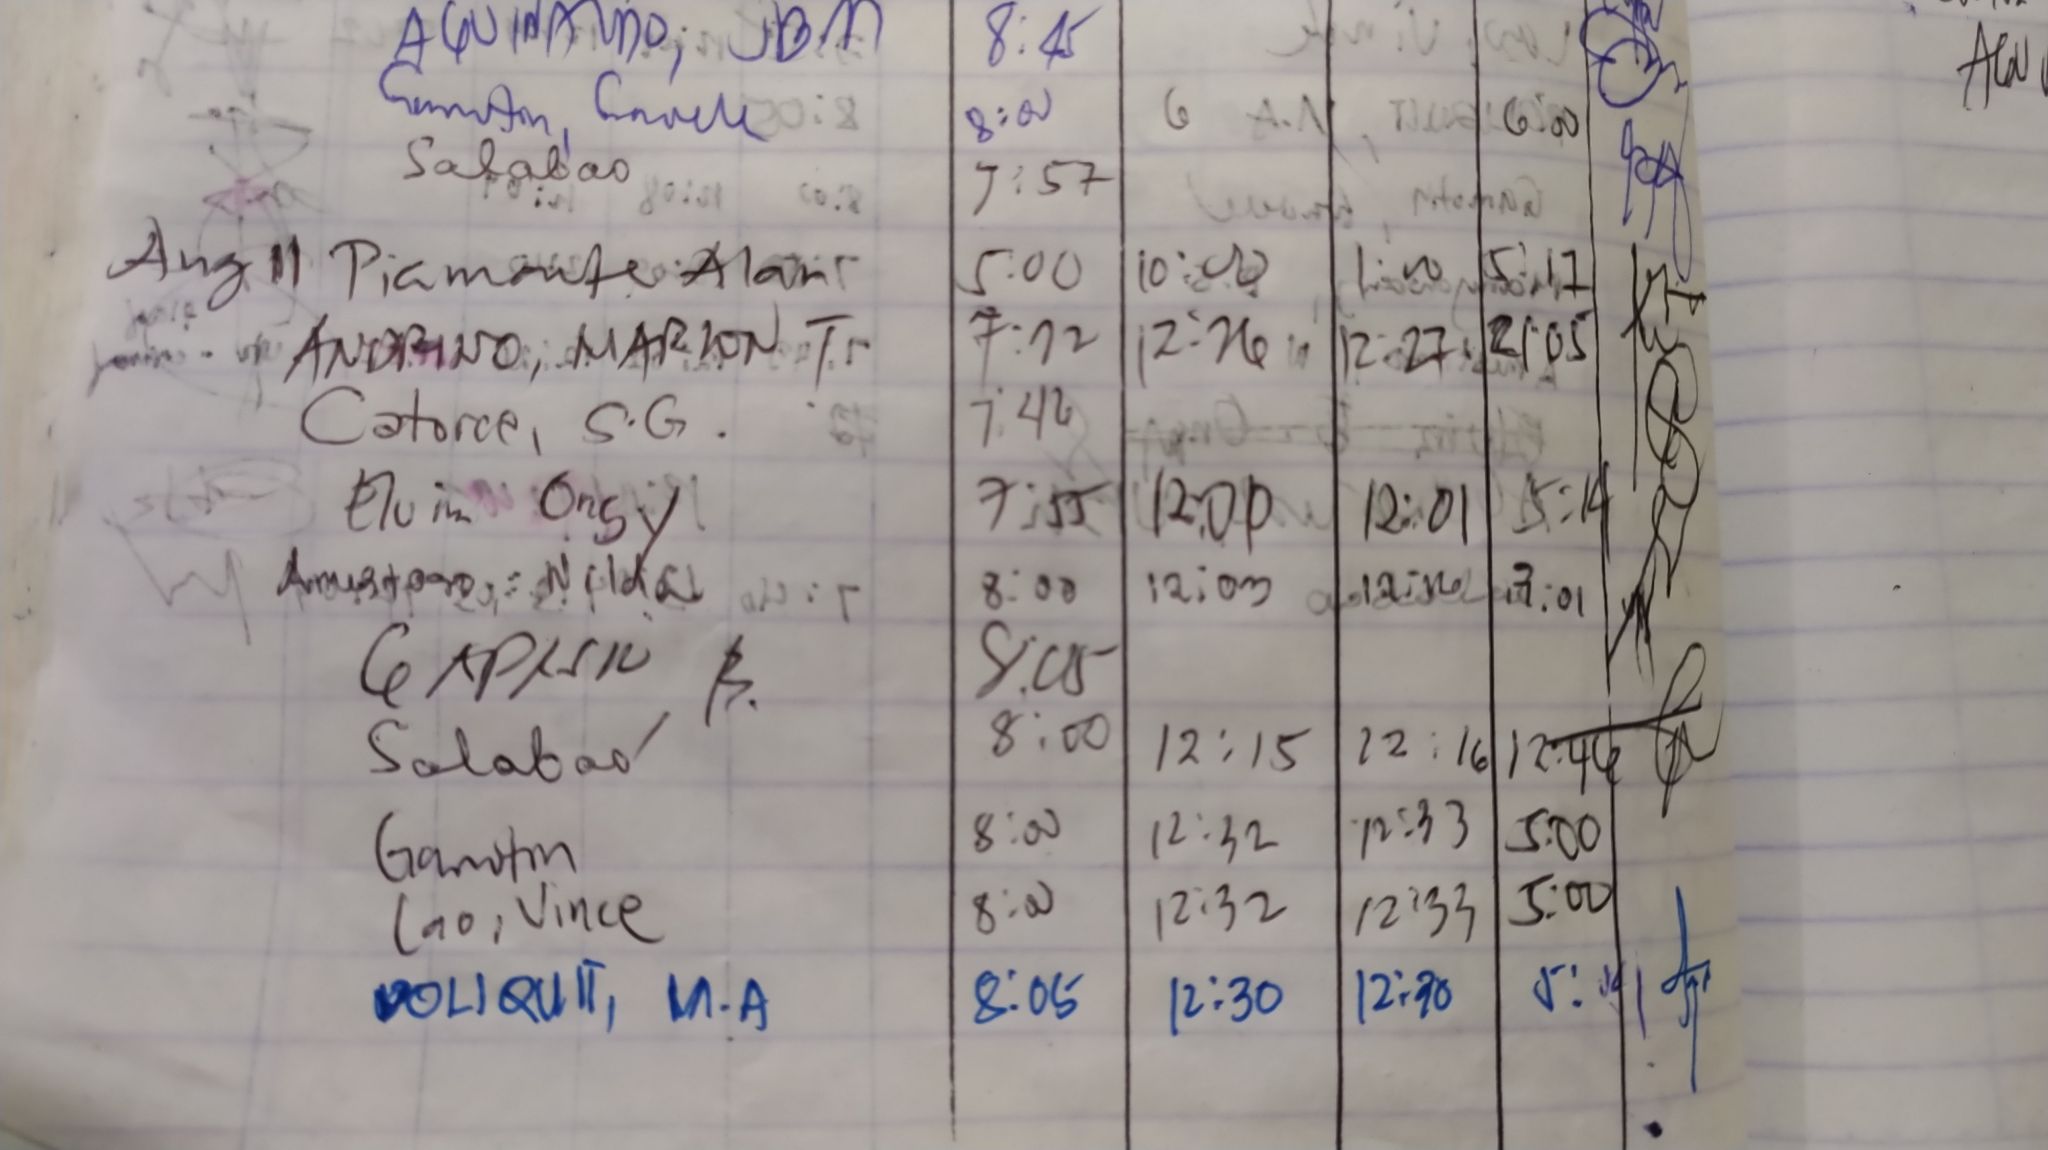 AGUINALDO, JBM 8:45
Gamotin, 8:00 6 6:00
Salabao 7:57
Aug 11 Piamonte Alan 5:00 10:00 1:00 5:17
ANDRINO, MARION T. 7:12 12:26 12:27 21:05
Catorce, S.G. 7:42
Elvin Ongy 7:55 12:00 12:01 5:14
Nilda 8:00 12:03 12:01
GAPASIN B. 8:05
Salabao 8:00 12:15 12:16 12:46
Gamotin 8:00 12:32 12:33 5:00
Lao, Vince 8:00 12:32 12:33 5:00
POLIQUIT, M.A 8:05 12:30 12:30
AGU